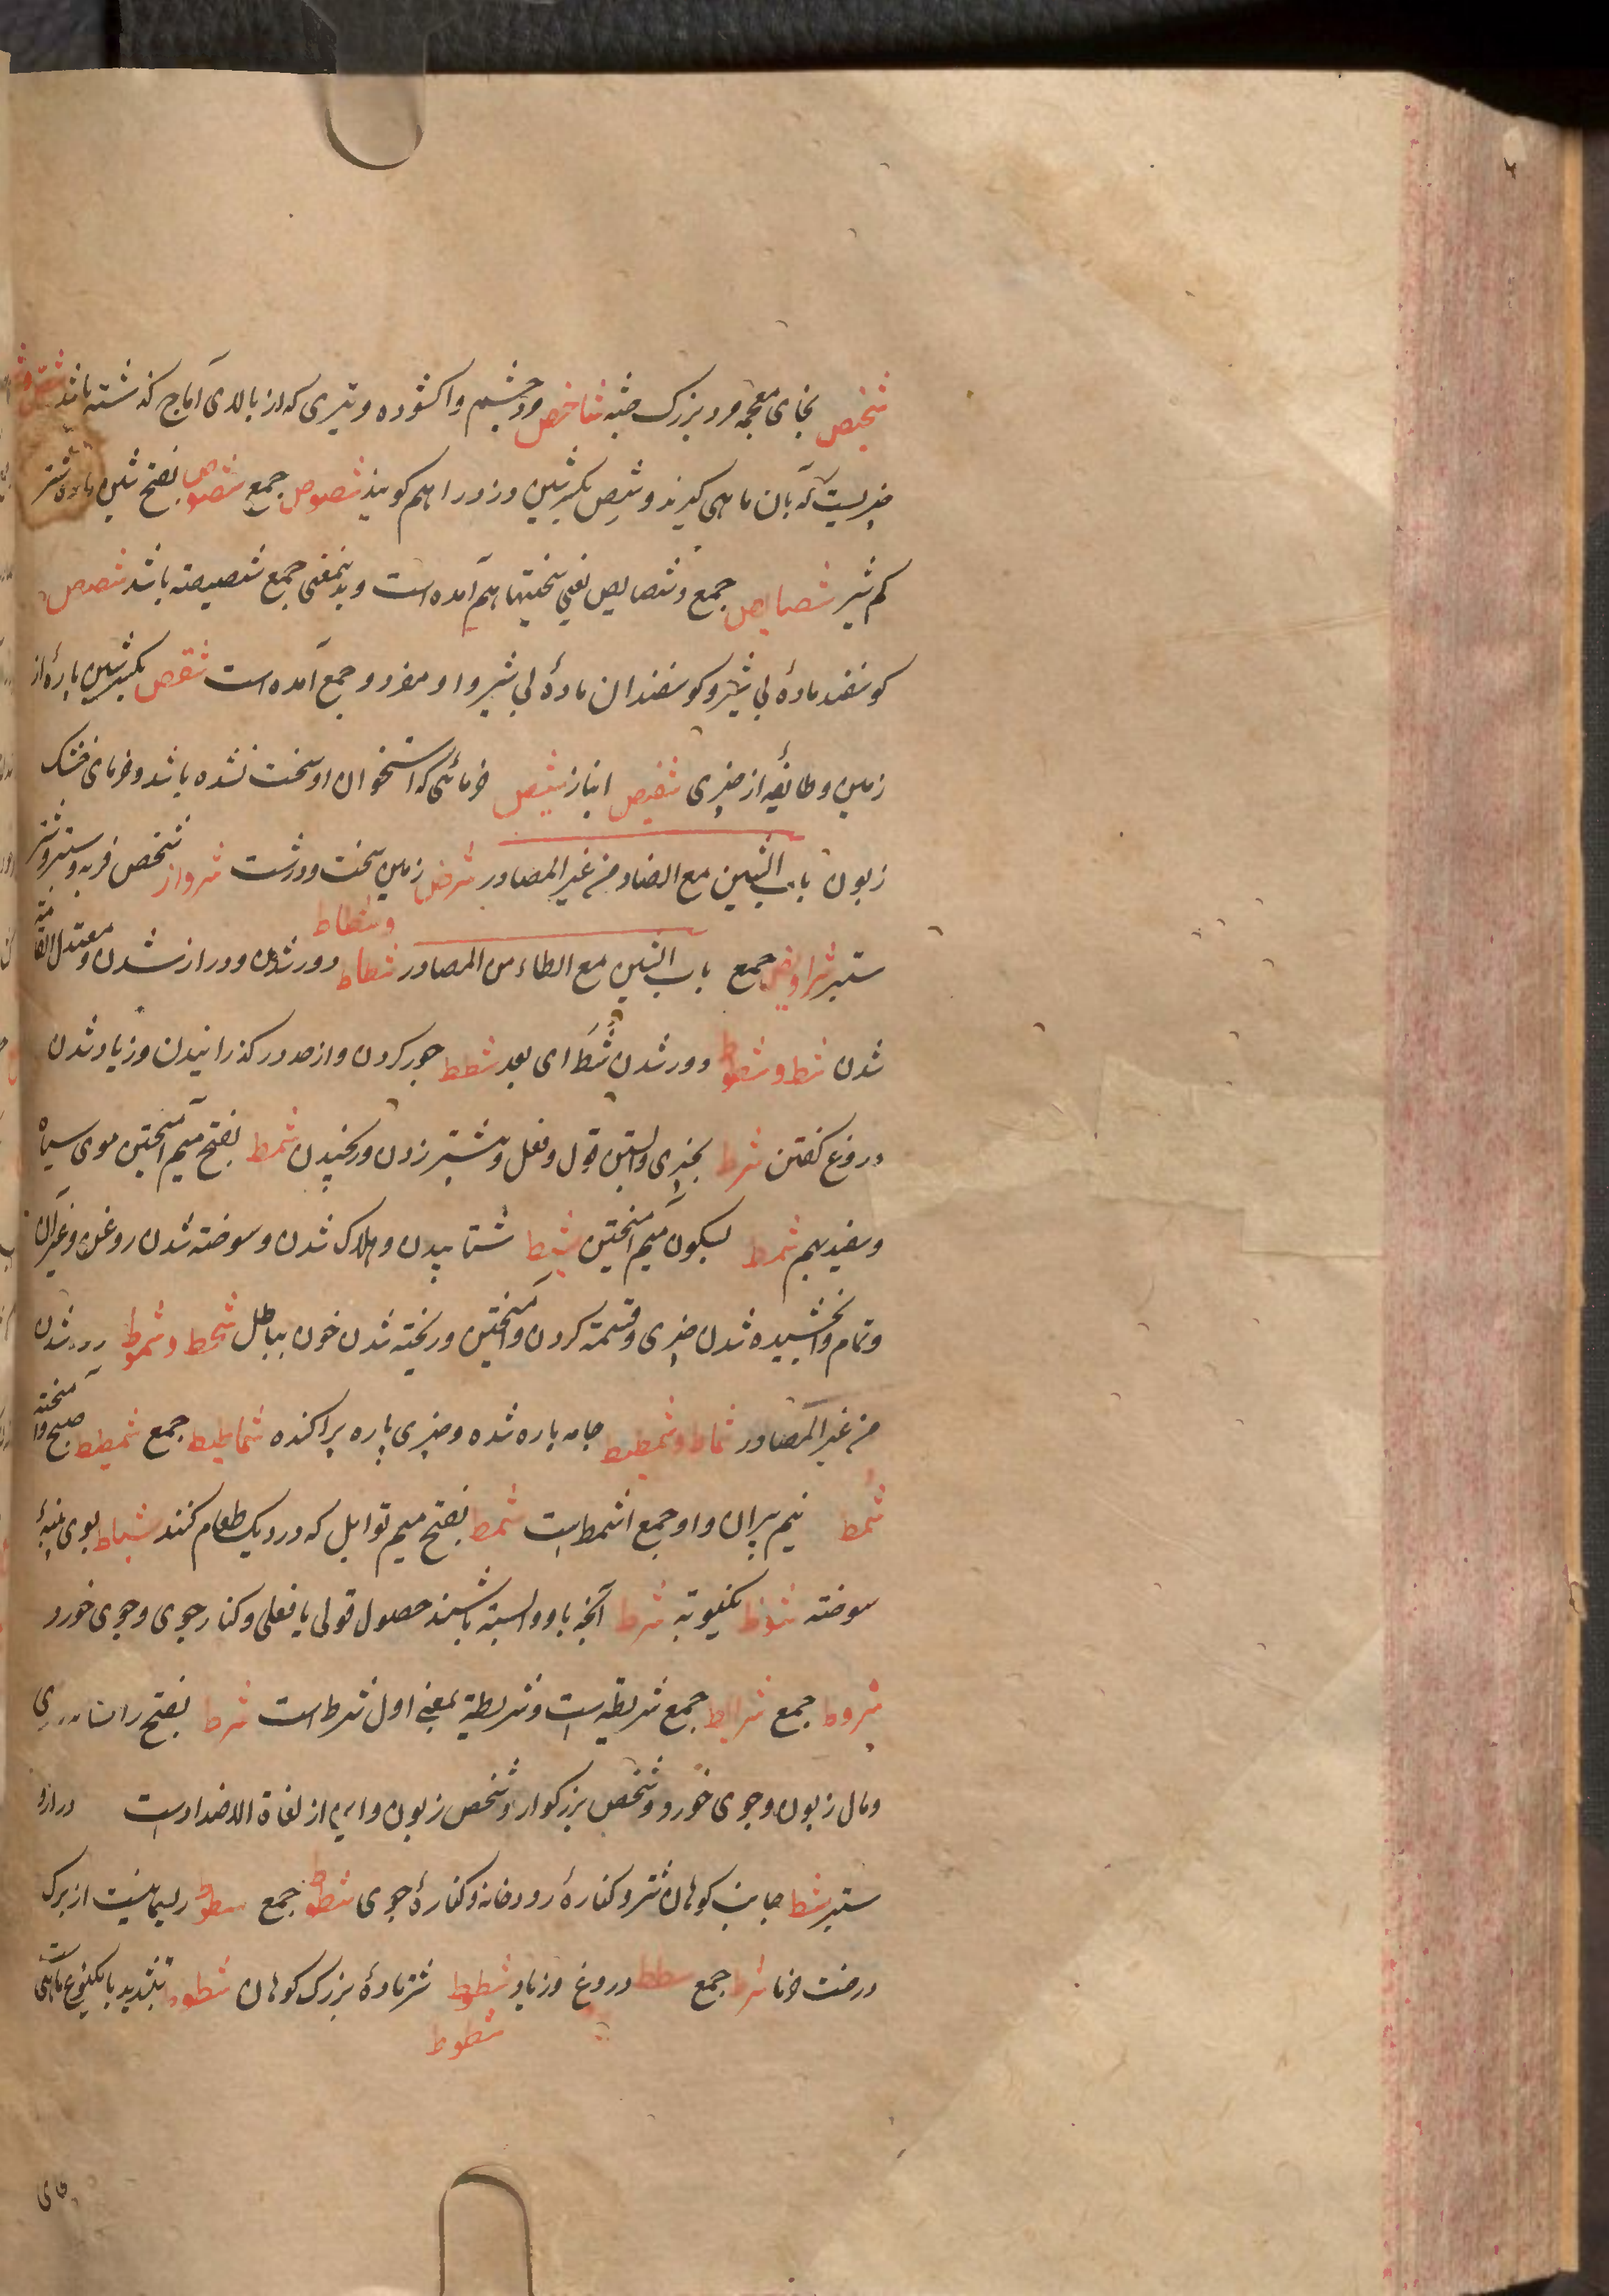 شخیص بخای معجمه مرد بزرگ جثه شاخص و چشم واکشوده و تیری که از بالای آماج گذشته باشد شص و
چیزیست که بآن ماهی گیرند و شص بکسر شین و دزد را هم گویند شصوص جمع شصوص بفتح شین ماده شتر
کم شیر شصایص جمع و شصایص یعنی سختیها هم آمده است و بدینمعنی جمع شصیصته باشد شصص
گوسفند مادۀ بی شیر و گوسفندان مادۀ بی شیر و او مفرد و جمع آمده است شقص بکسر شین پارۀ از
زمین و طایفه از چیزی شقیص انباز شیص خرمائی که استخوان او سخت نشده باشد و خرمای خشک
زبون باب الشین مع الضاد من غیر المصادر شرض زمین سخت و درشت شرواز شخص فربه و ستبر و شتر
ستبر شراویض جمع باب الشین مع الطاء من المصادر شطاط و شطاط دور شدن و دراز شدن و معتدل القامة
شدن شط و شطوط دور شدن شطّ ای بعد شطط جور کردن و از حد در گذرانیدن و زیاد شدن
دروغ گفتن شرط بچیزی وابستن قول و فعل و نشتر زدن و رکیدن شمط بفتح میم آمیختن موی سیاه
و سفید بهم شمط بسکون میم آمیختن شیط شتابیدن و هلاک شدن و سوخته شدن روغن و غیر آن
و تمام وابخشیده شدن چیزی و قسمة کردن و آمیختن و ریخته شدن خون بباطل شحط و شحوط دور شدن
من غیر المصادر شماط و شمطیط جامه پاره شده و چیزی پاره پراکنده شماطیط جمع شمیط صبح و آمیخته
شمط نیم پیران و او جمع اشمط است شمط بفتح میم توابل که در دیک طعام کنند شیاط بوی پنبۀ
سوخته شوط بکنوبته شرط آنچه باو وابسته باشند حصول قولی یا فعلی و کنار جوی و جوی خورد
شروط جمع شرایط جمع شریطه است و شریطة بمعنی اول شرط است شرط بفتح را
و مال زبون و جوی خورد و شخص بزرکوار و شخص زبون و این از لغاة الاضداد است دراز و
ستبر شط جانب کوهان شتر و کنارۀ رودخانه و کنارۀ جوی شطوط جمع ریسمانیست از برک
درخت خرما شرط جمع شطط دروغ و زیاد شطوط شتر مادۀ بزرک کوهان شطوط بتشدید با یکنوع ماهی است
شطوط